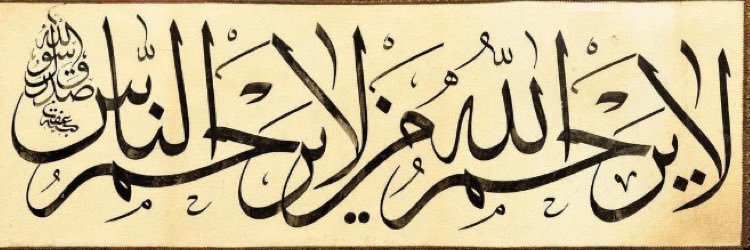 لا يرحم الله من لا يرحم الناس
صدق رسول الله